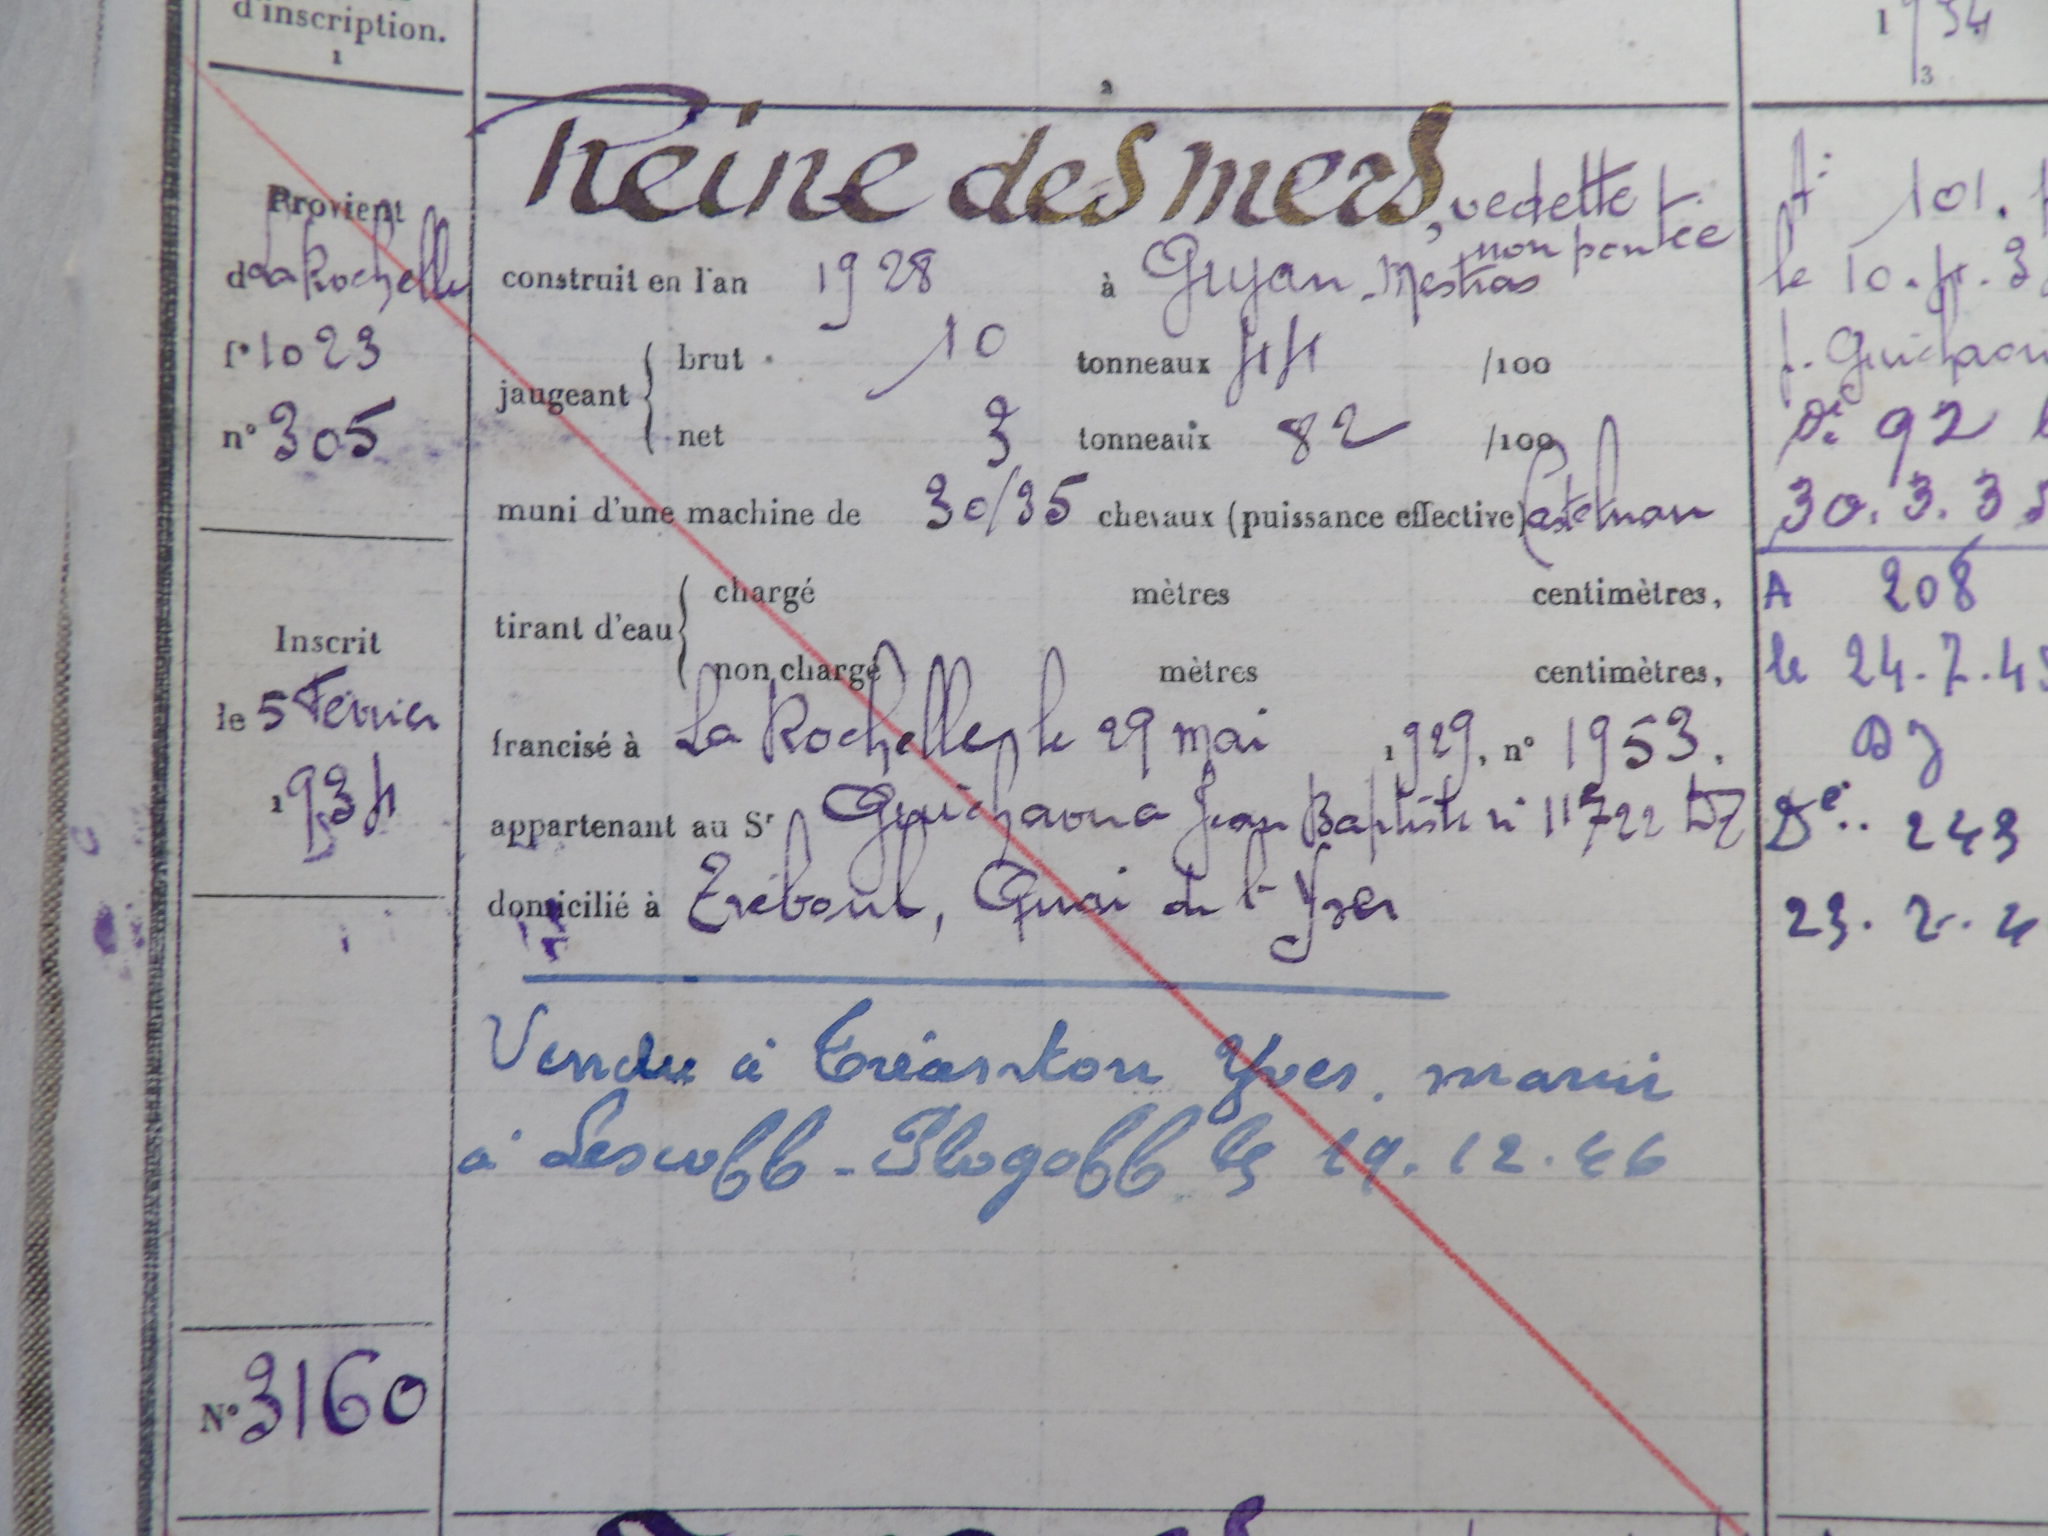 d'inscription.
1
2
1934
3
Provient
de La Rochelle
f° 1023
n° 305
Inscrit
le 5 Février
1934
N° 3160
Reine des mers, vedette
non pontée
construit en l'an 1928 à Gujan-Mestras
jaugeant brut 10 tonneaux 44 /100
net 3 tonneaux 82 /100
muni d'une machine de 30/35 chevaux (puissance effective) Castelnau
tirant d'eau chargé mètres centimètres,
non chargé mètres centimètres,
francisé à La Rochelle, le 29 mai 1929, n° 1953.
appartenant au Sr Guichaoua Jean Baptiste n° 11722 DZ
domicilié à Tréboul, Quai de l'Yser
Vendu à Tréanton Yves. marin
à Lescoff-Plogoff le 19.12.46
A: 101.
le 10.4.3
Dé 92
30.3.3
A 208
le 24.7.45
DZ
Dé.. 243
23. 2. 4